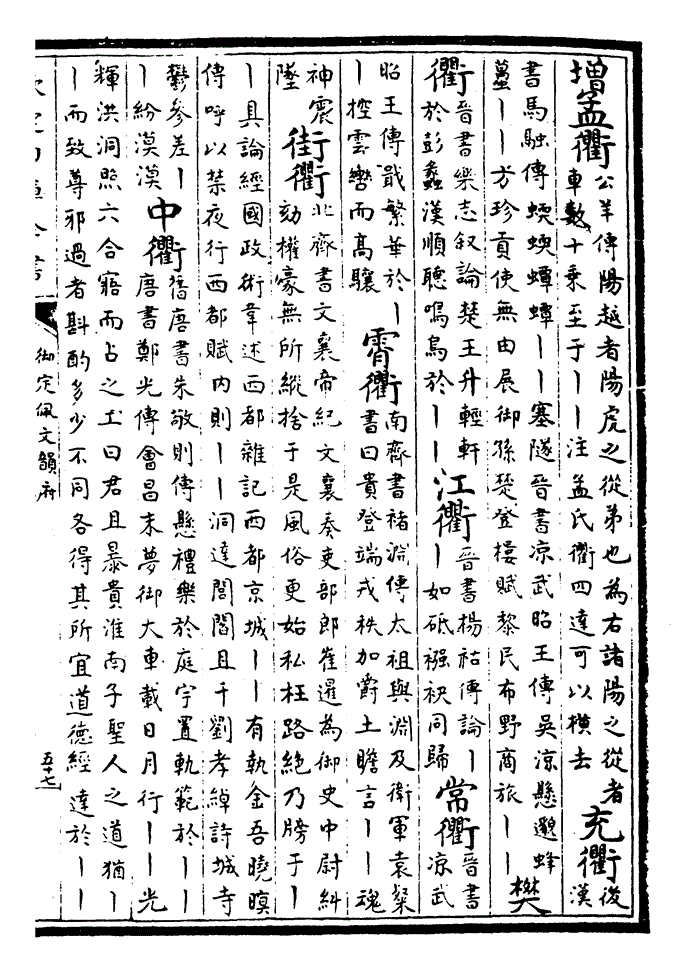 增孟衢公羊傳陽越者陽虎之從弟也為右諸陽之從者
車數十乗至于丨丨注孟氏衢四達可以横去
充衢後
漢
書馬融傳蝡蝡蟫蟫丨丨塞隧晉書凉武昭王傳吳凉懸邈蜂
蠆丨丨方珍貢使無由展御孫楚登樓賦黎民布野商旅丨丨
樊
衢晉書樂志叙論楚王升輕軒
於彭蠡漢順聽鳴鳥於丨丨
江衢晉書楊祜傳論丨
丨如砥襁袂同歸
常衢晉書
凉武
昭王傳戢繁華於丨
丨控雲轡而高驤
霄衢南齊書褚淵傳太祖與淵及衛軍袁粲
書曰貴登端戎秩加爵土瞻言丨丨魂
神震
墜
街衢北齊書文襄帝紀文襄奏吏部郎崔暹為御史中尉糾
劾權豪無所縱捨于是風俗更始私枉路絶乃牓于丨
丨具論經國政術韋述西都雜記西都京城丨丨有執金吾曉暝
傳呼以禁夜行西都賦内則丨丨洞達閭閻且千劉孝綽詩城寺
鬱參差丨
丨紛漠漠
中衢舊唐書朱敬則傳懸禮樂於庭宇置軌範於丨丨
唐書鄭光傳會昌末夢御大車載日月行丨丨光
輝洪洞照六合寤而占之工曰君且暴貴淮南子聖人之道猶丨
丨而致尊邪過者斟酌多少不同各得其所宜道德經達於丨丨
欽定四庫全書
御定佩文韻府
五十七